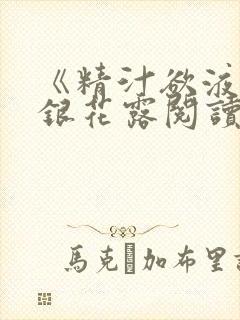 《精汁欲液
銀花露閱讀
馬克加布里